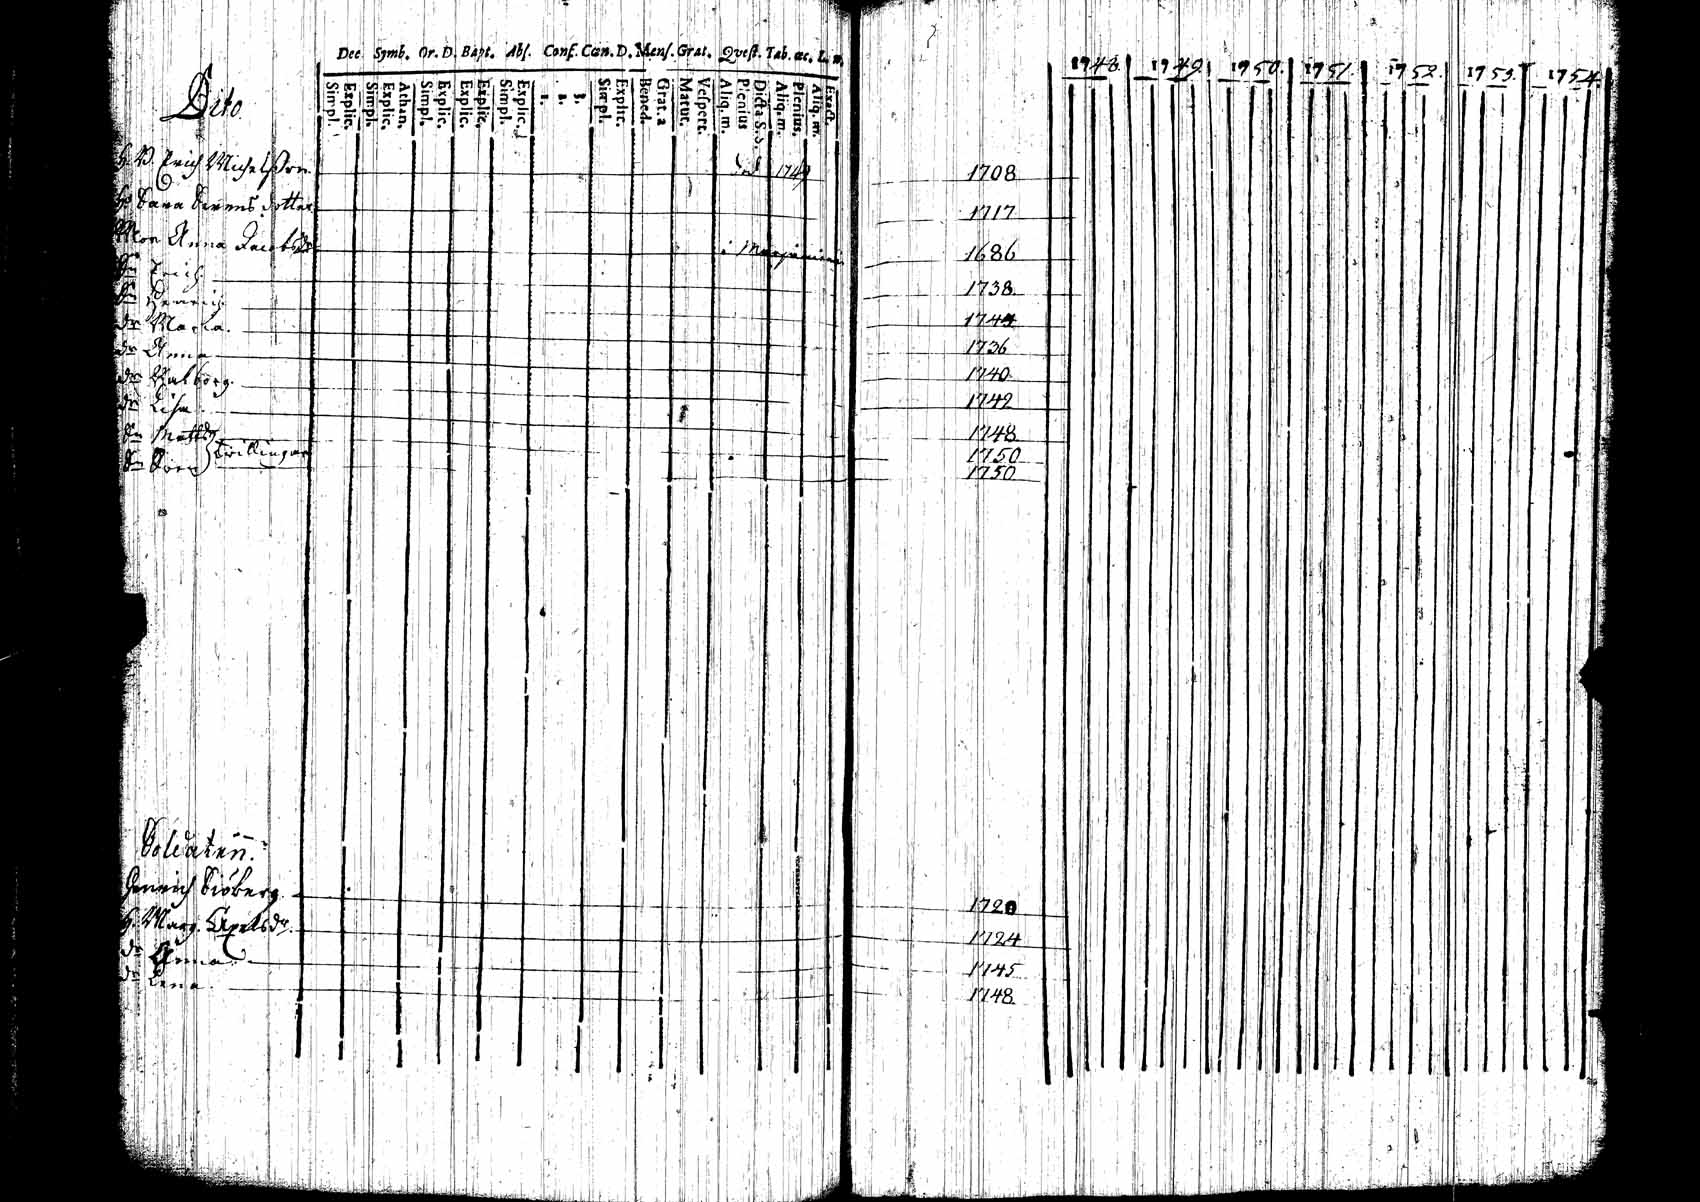 Dec. Symb. Or. D. Bapt. Abs. Conf. Cœn. D. Mens. Grat. Quest. Tab. œc. L. n.
Simpl. Explic. Simpl. Explic. Athan. Simpl. Explic. Explic. Explic. Simpl. Explic. 1. 2. 3. Simpl. Explic. Bened. Grat. a Matut. Vespert. Aliq. m. Plenius Dicta S. S. Aliq. m. Plenius. Aliq. m. Exact.
1748. 1749. 1750. 1751. 1752. 1753. 1754.
Dito
Erich Michelsson 1749 1708
Sara dotter 1717
Mor Anna Jacobsdr 1686
Sn Erich 1738
Sn Henrich 1744
dr Maria. 1736
dr Anna 1740
dr Valborg. 1742
dr Lisa 1748
Sn Matts 1750
Sn 1750
Tvillingar
Soldaten.
Henrich Siöberg 1720
H. Marg. Axelsdr. 1724
dr Anna. 1745
dr Lena. 1748